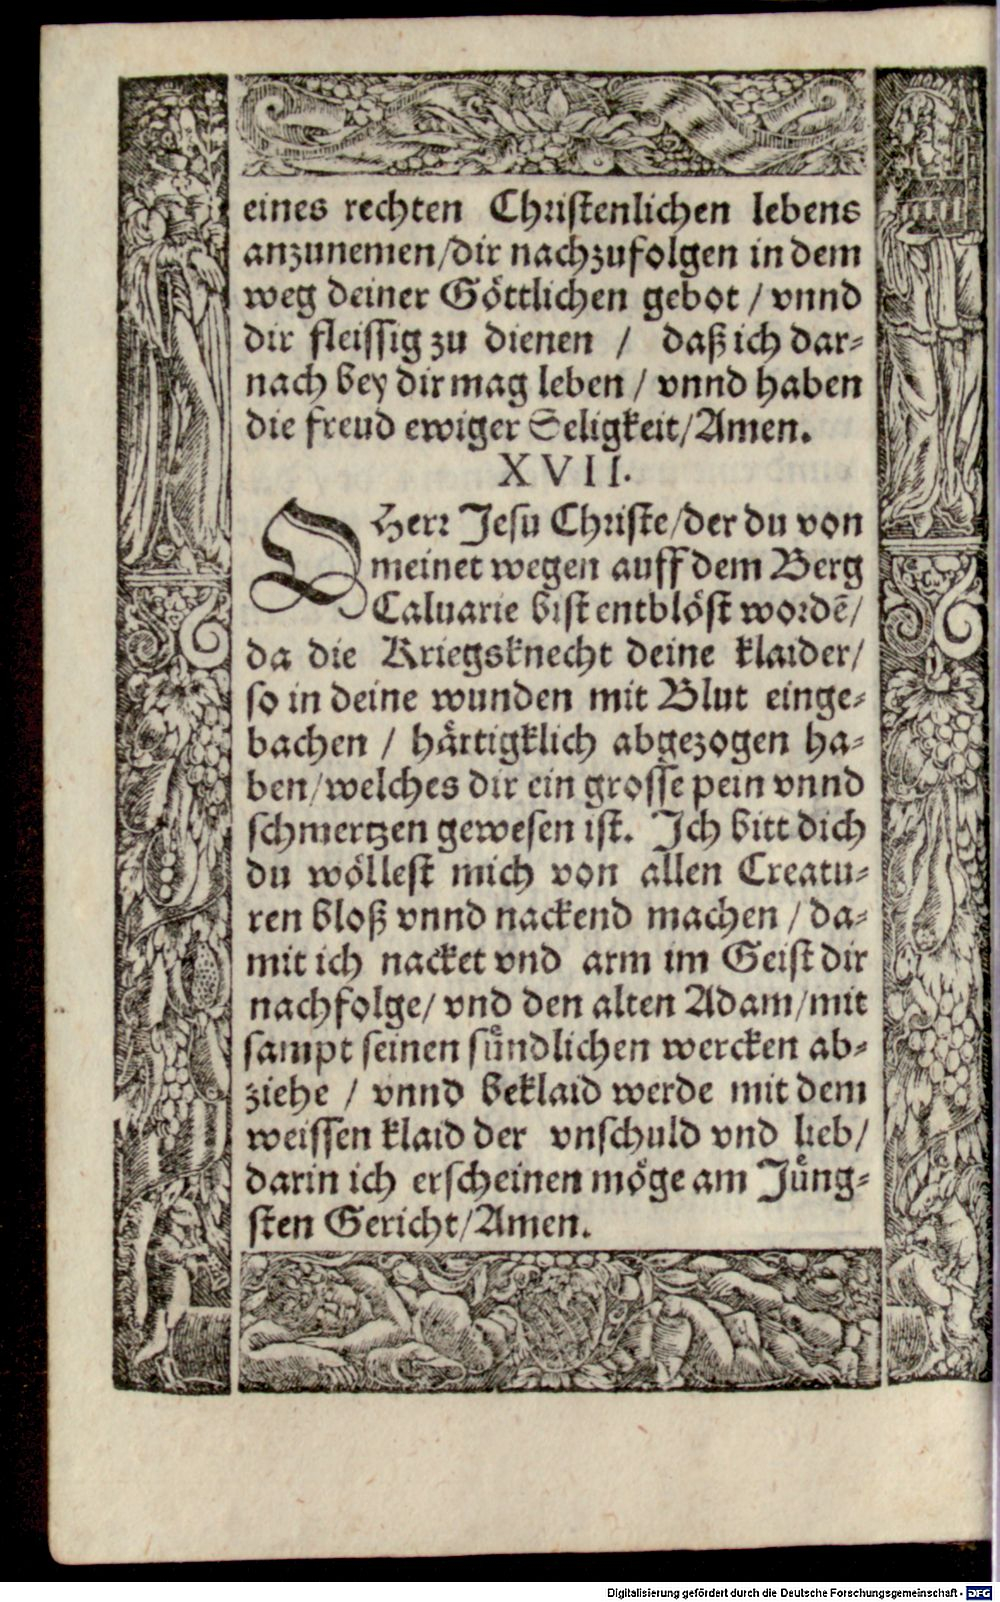 eines rechten Christenlichen lebens
anzunemen/dir nachzufolgen in dem
weg deiner Göttlichen gebot / vnnd
dir fleissig zu dienen / daß ich dar⸗
nach bey dir mag leben / vnnd haben
die freud ewiger Seligkeit/Amen.
XVII.
O Herr Jesu Christe/der du von
meinet wegen auff dem Berg
Caluarie bist entblöst wordē/
da die Kriegsknecht deine klaider/
so in deine wunden mit Blut einge⸗
bachen / haͤrtigklich abgezogen ha⸗
ben/welches dir ein grosse pein vnnd
schmertzen gewesen ist. Ich bitt dich
du wöllest mich von allen Creatu⸗
ren bloß vnnd nackend machen / da⸗
mit ich nacket vnd arm im Geist dir
nachfolge/ vnd den alten Adam/mit
sampt seinen sündlichen wercken ab⸗
ziehe / vnnd beklaid werde mit dem
weissen klaid der vnschuld vnd lieb/
darin ich erscheinen möge am Jüng⸗
sten Gericht/Amen.
Digitalisierung gefördert durch die Deutsche Forschungsgemeinschaft - DFG